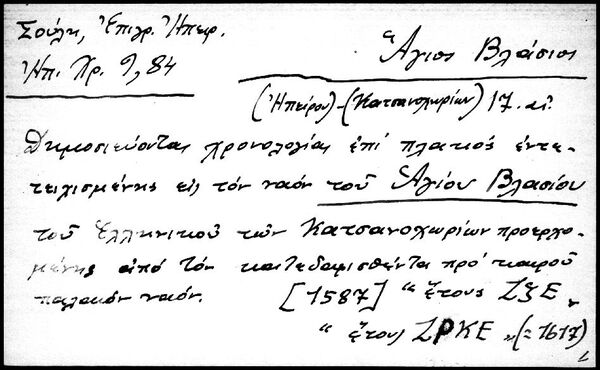 Σούλη, Ἐπιγρ. Ἠπειρ.
Ἠπ. Χρ. 9, 84
Ἅγιος Βλάσιος
(Ἠπείρου)-(Κατσανοχωρίων) 17. αἰ.
Δημοσιεύονται χρονολογίαι ἐπί πλακός ἐντε-
τειχισμένης εἰς τόν ναόν τοῦ Ἁγίου Βλασίου
τοῦ Ἑλληνικοῦ τῶν Κατσανοχωρίων προερχο-
μένης ἀπό τόν κατεδαφισθέντα πρό καιροῦ
παλαιόν ναόν. [1587] "ἔτους ΖϟΕ"
"ἔτους ΖΡΚΕ" (=1617)